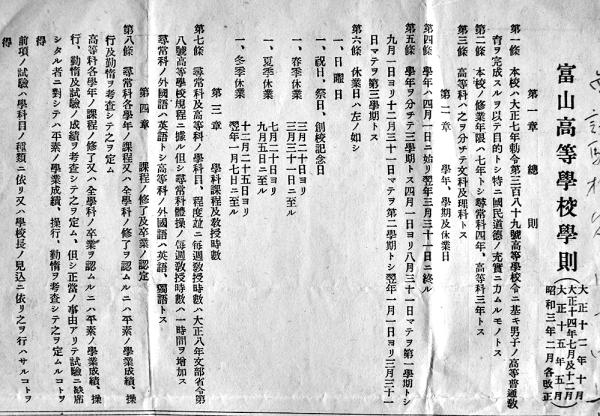 富山高等學校學則
大正十二年十月
大正十四年七月及十二月
大正十五年五月
昭和三年二月各改正
第一章 總則
第一條 本校ハ大正七年勅令第三百八十九號高等學校令ニ基キ男子ノ高等普通敎
育ヲ完成スルヲ以テ目的トシ特ニ國民道德ノ充實ニ力ムルモノトス
第二條 本校ノ修業年限ハ七年トシ尋常科四年、高等科三年トス
第三條 高等科ハ之ヲ分チテ文科及理科トス
第二章 學年、學期及休業日
第四條 學年ハ四月一日ニ始リ翌年三月三十一日ニ終ル
第五條 學年ヲ分チテ三學期トス四月一日ヨリ八月三十一日マテヲ第一學期トシ
九月一日ヨリ十二月三十一日マテヲ第二學期トシ翌年一月一日ヨリ三月三十一
日マテヲ第三學期トス
第六條 休業日ハ左ノ如シ
一、日曜日
一、祝日、祭日、創校記念日
一、春季休業 三月二十日ヨリ
三月三十一日ニ至ル
一、夏季休業 七月二十日ヨリ
九月五日ニ至ル
一、冬季休業 十二月二十五日ヨリ
翌年一月七日ニ至ル
第三章 學科課程及敎授時數
第七條 尋常科及高等科ノ學科目、程度竝ニ每週敎授時數ハ大正八年文部省令第
八號高等學校規程ニ據ル但シ尋常科體操ノ每週敎授時數ハ一時間ヲ增加ス
尋常科ノ外國語ハ英語トシ高等科ノ外國語ハ英語、獨語トス
第四章 課程ノ修了及卒業ノ認定
第八條 尋常科各學年ノ課程ノ修了又ハ全學科ノ修了ヲ認ムルニハ平素ノ學業成績、操
行及勤惰ヲ考査シテ之ヲ定ム
高等科各學年ノ課程ノ修了又ハ全學科ノ卒業ヲ認ムルニハ平素ノ學業成績、操
行、勤惰及試驗ノ成績ヲ考査シテ之ヲ定ム、但シ正當ノ事由アリテ試驗ニ缺席
シタル者ニ對シテハ平素ノ學業成績、操行、勤惰ヲ考査シテ之ヲ定ムルコトヲ
得
前項ノ試驗ハ學科目ノ種類ニ依リ又ハ學校長ノ見込ニ依リ之ヲ行ハサルコトヲ
得